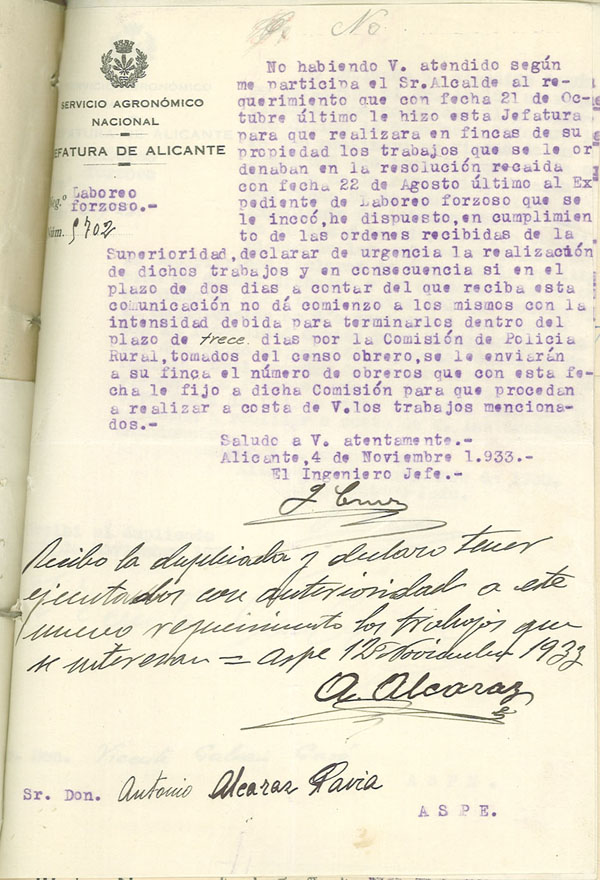 No
SERVICIO AGRONÓMICO
NACIONAL
JEFATURA DE ALICANTE
Neg.º Laboreo
forzoso.-
Núm. 5702
No habiendo V. atendido según
me participa el Sr.Alcalde al re-
querimiento que con fecha 21 de Oc-
tubre último le hizo esta Jefatura
para que realizara en fincas de su
propiedad los trabajos que se le or
denaban en la resolución recaida
con fecha 22 de Agosto último al Ex
pediente de Laboreo forzoso que se
le incoó,he dispuesto,en cumplimien
to de las ordenes recibidas de la
Superioridad,declarar de urgencia la realización
de dichos trabajos y en consecuencia si en el
plazo de dos dias a contar del que reciba esta
comunicación no dá comienzo a los mismos con la
intensidad debida para terminarlos dentro del
plazo de trece dias por la Comisión de Policia
Rural,tomados del censo obrero,se le enviarán
a su finca el número de obreros que con esta fe-
cha le fijo a dicha Comisión para que procedan
a realizar a costa de V.los trabajos menciona-
dos.-
Saludo a V. atentamente.-
Alicante,4 de Noviembre 1.933.-
El Ingeniero Jefe.-
J Cruz
Recibo la duplicada y declaro tener
ejecutados con anterioridad a este
nuevo requerimiento los trabajos que
se interesan = Aspe 12 Noviembre 1933
A. Alcaraz
Sr. Don. Antonio Alcaraz Pavia
ASPE.